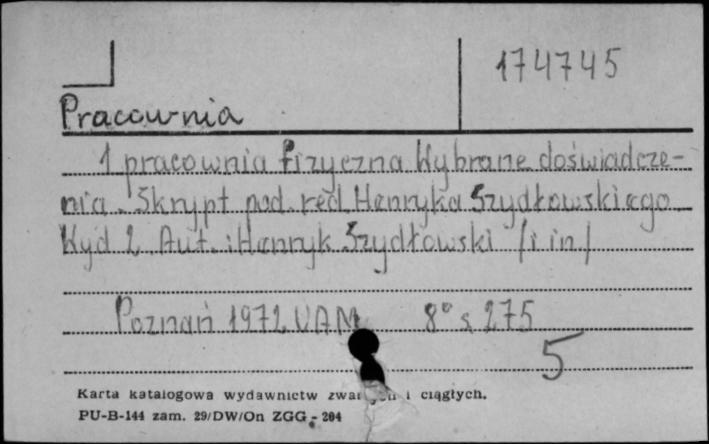 174745
Pracownia
1 pracownia fizyczna Wybrane doświadcze-
nia. Skrypt pod. red. Henryka Szydłowskiego
Wyd 2. Aut.: Henryk Szydłowski /i in/
Poznań 1972 UAM 8° s 275
5
Karta katalogowa wydawnictw i ciągłych.
PU-B-144 zam. 29/DW/On ZGG - 204